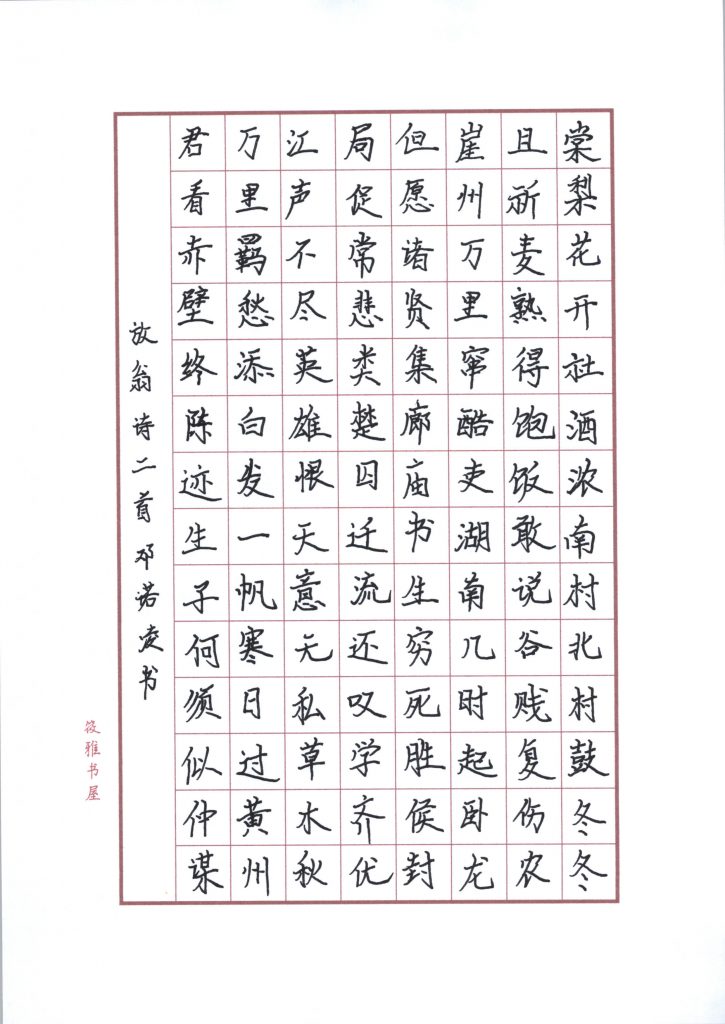 棠梨花开社酒浓南村北村鼓冬冬
且祈麦熟得饱饭敢说谷贱复伤农
崖州万里窜酷吏湖南几时起卧龙
但愿诸贤集廊庙书生穷死胜侯封
局促常悲类楚囚迁流还叹学齐优
江声不尽英雄恨天意无私草木秋
万里羁愁添白发一帆寒日过黄州
君看赤壁终陈迹生子何须似仲谋
放翁诗二首邓诺凌书
筱雅书屋